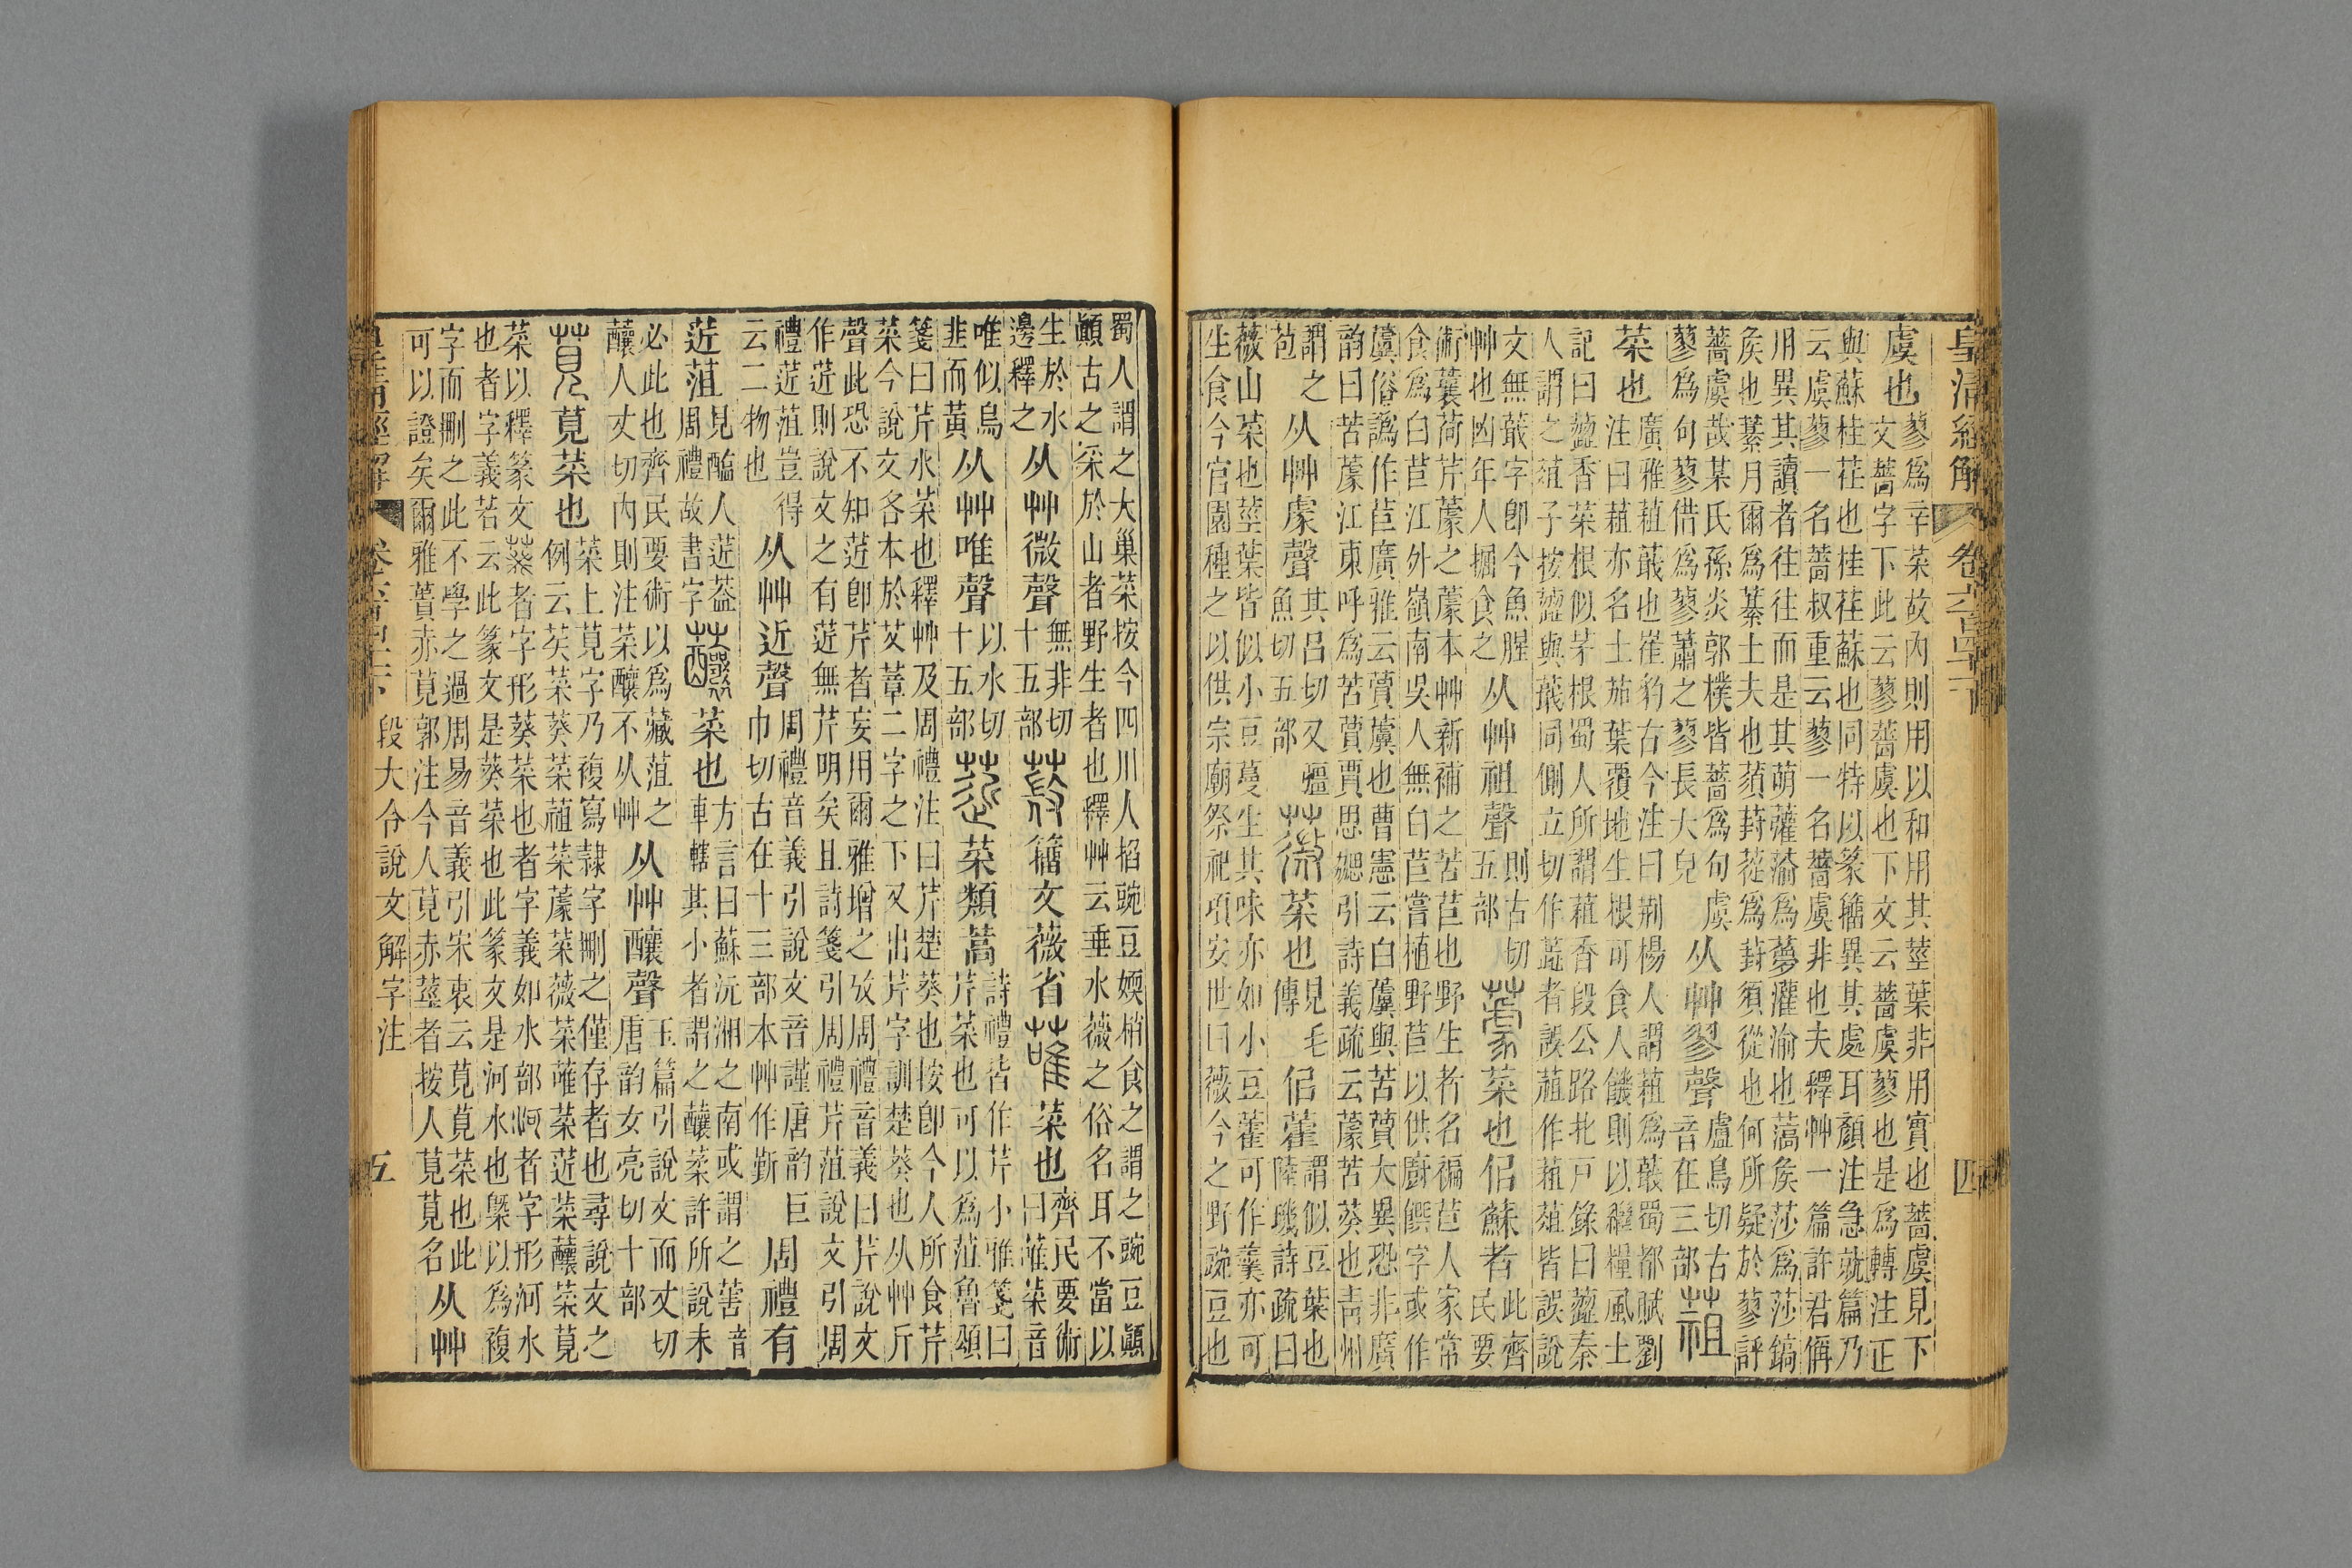 皇清經解 卷六百四十一下 四
虞也 蓼爲辛菜故內則用以和用其莖葉非用實也薔虞見下
文薔字下此云蓼薔虞也下文云薔虞蓼也是爲轉注正
與蘇桂荏也桂荏蘇也同特以篆籒異其處耳顏注急就篇乃
云虞蓼一名薔叔重云蓼一名薔虞非也夫釋艸一篇許君偁
用異其讀者往往而是其萌虇蕍爲夢灌渝也蒚矦莎爲莎鎬
矦也藄月爾爲藄土夫也蕦葑蓯爲葑須從也何所疑於蓼評
薔虞哉某氏孫炎郭樸皆薔爲句虞
蓼爲句蓼借爲蓼蕭之蓼長大皃 从艸翏聲 盧鳥切古音在三部 蒩
菜也 廣雅蒩蕺也崔豹古今注曰荆楊人謂蒩爲蕺蜀都賦劉
注曰蒩亦名土茄葉覆地生根可食人饑則以繼糧風土
記曰蘁香菜根似茅根蜀人所謂蒩香段公路北戶錄曰蘁秦
人謂之蒩子按蘁與蕺同側立切作蘁者誤蒩作菹葅皆誤說
文無蕺字卽今魚腥
艸也凶年人掘食之 从艸祖聲 則古切五部 䕮 菜也佀蘇者 此齊民要
術蘘荷芹䕆之䕆本艸新補之苦苣也野生者名褊苣人家常
食爲白苣江外嶺南吳人無白苣嘗植野苣以供廚饌字或作
䕮俗譌作苣廣雅云蕒䕮也曹憲云白䕮與苦蕒大異恐非廣
韵曰苦䕆江東呼爲苦蕒賈思勰引詩義疏云䕆苦葵也靑州
謂之苞 从艸豦聲 其呂切又彊魚切五部 薇 菜也 見毛傳 佀藿 謂似豆葉也
陸璣詩疏曰
薇山菜也莖葉皆似小豆蔓生其味亦如小豆藿可作羹亦可
生食今官園種之以供宗廟祭祀項安世曰薇今之野豌豆也
蜀人謂之大巢菜按今四川人掐豌豆媆梢食之謂之豌豆顚
顚古之采於山者野生者也釋艸云垂水薇之俗名耳不當以
生於水邊釋之 从艸微聲 無非切十五部 𦼺 籒文薇省 蓶 菜也 齊民要術曰蓶菜音
唯似烏韭而黃 从艸唯聲 以水切十五部 菦 菜類蒿 詩禮皆作芹小雅箋曰
芹菜也可以爲菹魯頌
箋曰芹水菜也釋艸及周禮注曰芹楚葵也按卽今人所食芹
菜今說文各本於艾葦二字之下又出芹字訓楚葵也从艸斤
聲此恐不知菦卽芹者妄用爾雅增之攷周禮音義曰芹說文
作菦則說文之有菦無芹明矣且詩箋引周禮芹菹說文引周
禮菦菹豈得云二物也 从艸近聲 周禮音義引說文音謹唐韵巨
巾切古在十三部本艸作靳 周禮有
菦菹 見醢人菦葢周禮故書字 蘸 菜也 方言曰蘇沅湘之南或謂之䔬音
車轄其小者謂之蘸菜許所說未
必此也齊民要術以爲藏菹之
蘸人丈切內則注菜蘸不从艸 从艸釀聲 玉篇引說文而丈切
唐韵女亮切十部
莧 莧菜也 菜上莧字乃複寫隸字刪之僅存者也尋說文之
例云芺菜葵菜蒩菜䕆菜薇菜蓶菜菦菜蘸菜莧
菜以釋篆文 者字形葵菜也者字義如水部 者字形河水
也者字義若云此篆文是葵菜也此篆文是河水也槩以爲複
字而刪之此不學之過周易音義引宋衷云莧莧菜也此
可以證矣爾雅蕢赤莧郭注今人莧赤莖者按人莧莧名 从艸
皇淸經解 卷六百四十一下 段大令說文解字注 五